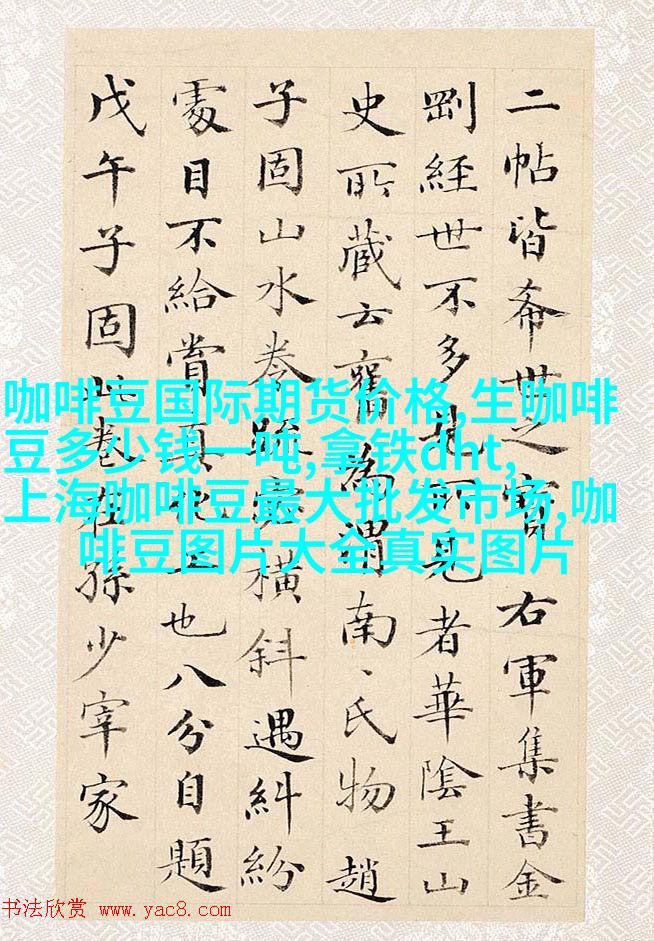 二帖皆希世之寶 右軍集書金
剛經世不多見所見者華陰王山
史所藏云舊為渭南〻氏物趙
子固山水卷橫斜遇糾紛
處目不給賞真也八分自題
戊午子固此卷在孫少宰家
咖啡豆国际期货价格,生咖啡
豆多少钱一吨,拿铁dht,
上海咖啡豆最大批发市场,咖
啡豆图片大全真实图片
书法欣赏 www.yac8.com